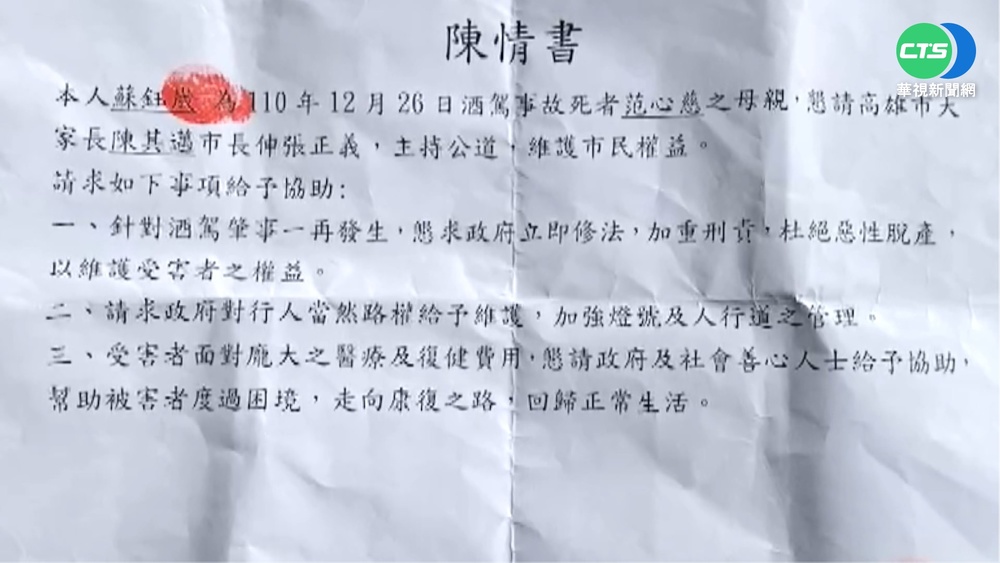 陳情書
CTS
華視新聞網
本人蘇鈺 為110年12月26日酒駕事故死者范心慈之母親，懇請高雄市大
家長陳其邁市長伸張正義，主持公道，維護市民權益。
請求如下事項給予協助:
一、針對酒駕肇事一再發生，態求政府立即修法，加重刑責，杜絕惡性脫產，
以維護受害者之權益。
二、請求政府對行人當然路權給予維護，加強燈號及人行道之管理。
三、受害者面對龐大之醫療及復健費用，態請政府及社會善心人士給予協助，
幫助被害者度過困境，走向康復之路，回歸正常生活。